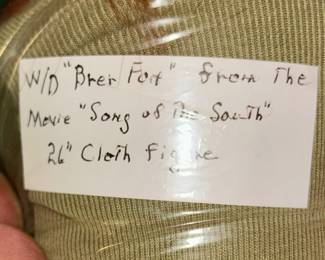 W/D "Brer Fox" from The
Movie "Song of The South"
26" Cloth figure